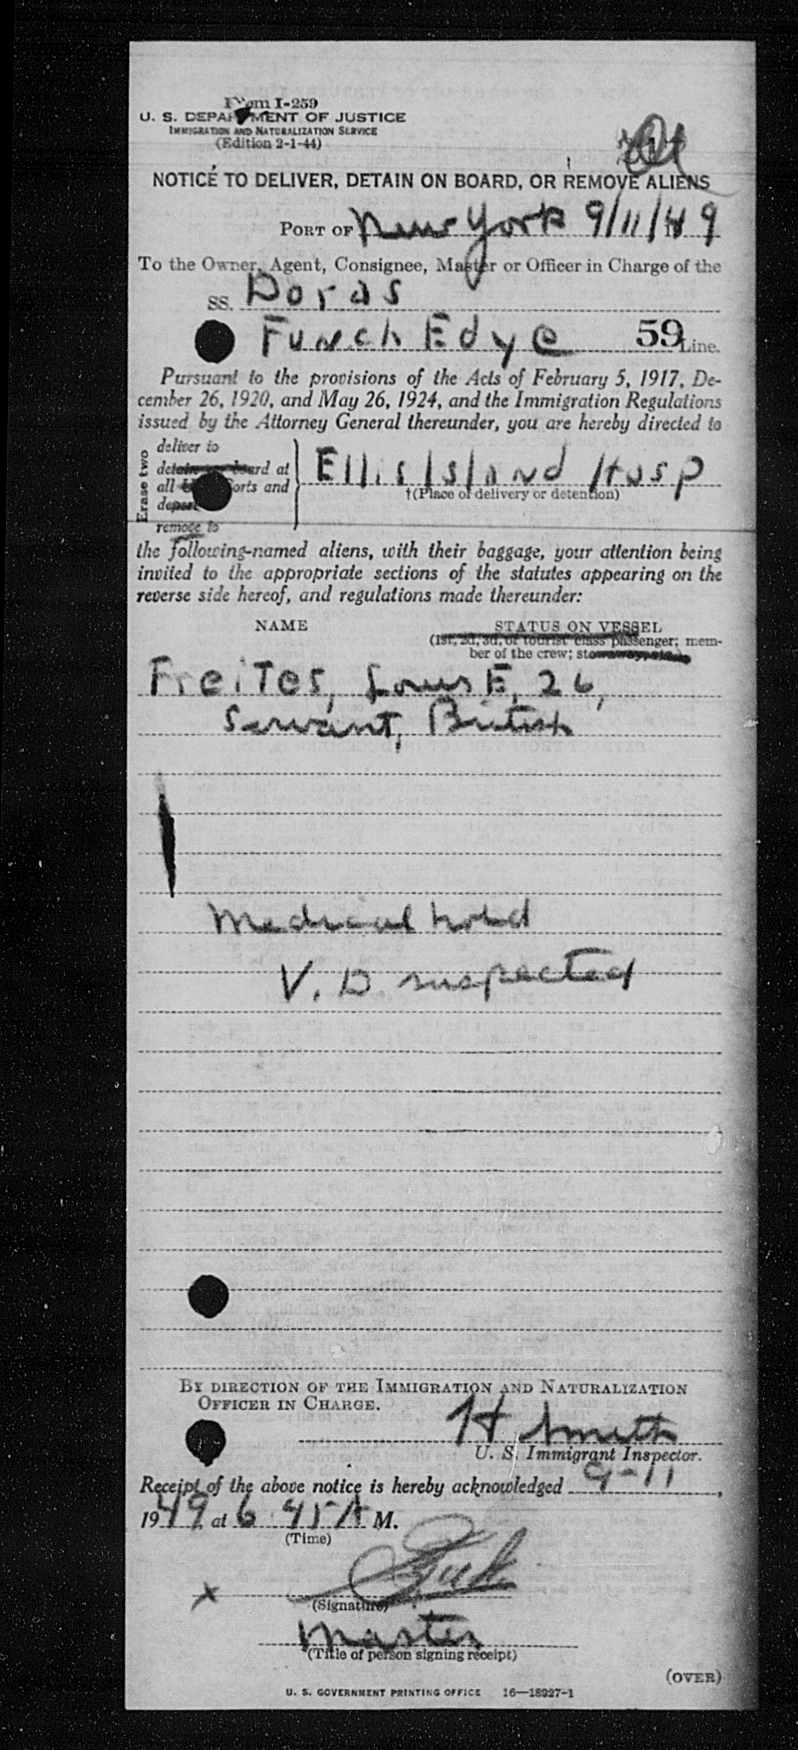 Form I-259
U. S. DEPARTMENT OF JUSTICE
IMMIGRATION AND NATURALIZATION SERVICE
(Edition 2-1-44)
NOTICE TO DELIVER, DETAIN ON BOARD, OR REMOVE ALIENS
PORT OF New York 9/11/49
To the Owner, Agent, Consignee, Master or Officer in Charge of the
SS. Doras
Funch Edye 59 Line.
Pursuant to the provisions of the Acts of February 5, 1917, De-
cember 26, 1920, and May 26, 1924, and the Immigration Regulations
issued by the Attorney General thereunder, you are hereby directed to
Erase two
deliver to
detain on board at
all ports and
deport
remove to
Ellis Island Hosp
†(Place of delivery or detention)
the following-named aliens, with their baggage, your attention being
invited to the appropriate sections of the statutes appearing on the
reverse side hereof, and regulations made thereunder:
NAME STATUS ON VESSEL
(1st, 2d, 3d, or tourist class passenger; mem-
ber of the crew; stowaway, etc.)
Freites, Louis E, 26,
Servant, British
Medical hold
V. D suspected
BY DIRECTION OF THE IMMIGRATION AND NATURALIZATION
OFFICER IN CHARGE.
H Smith
U. S. Immigrant Inspector.
Receipt of the above notice is hereby acknowledged 9-11,
1949 at 6 45 A M.
(Time)
x
(Signature)
Master
(Title of person signing receipt)
(OVER)
U. S. GOVERNMENT PRINTING OFFICE 16—18927-1